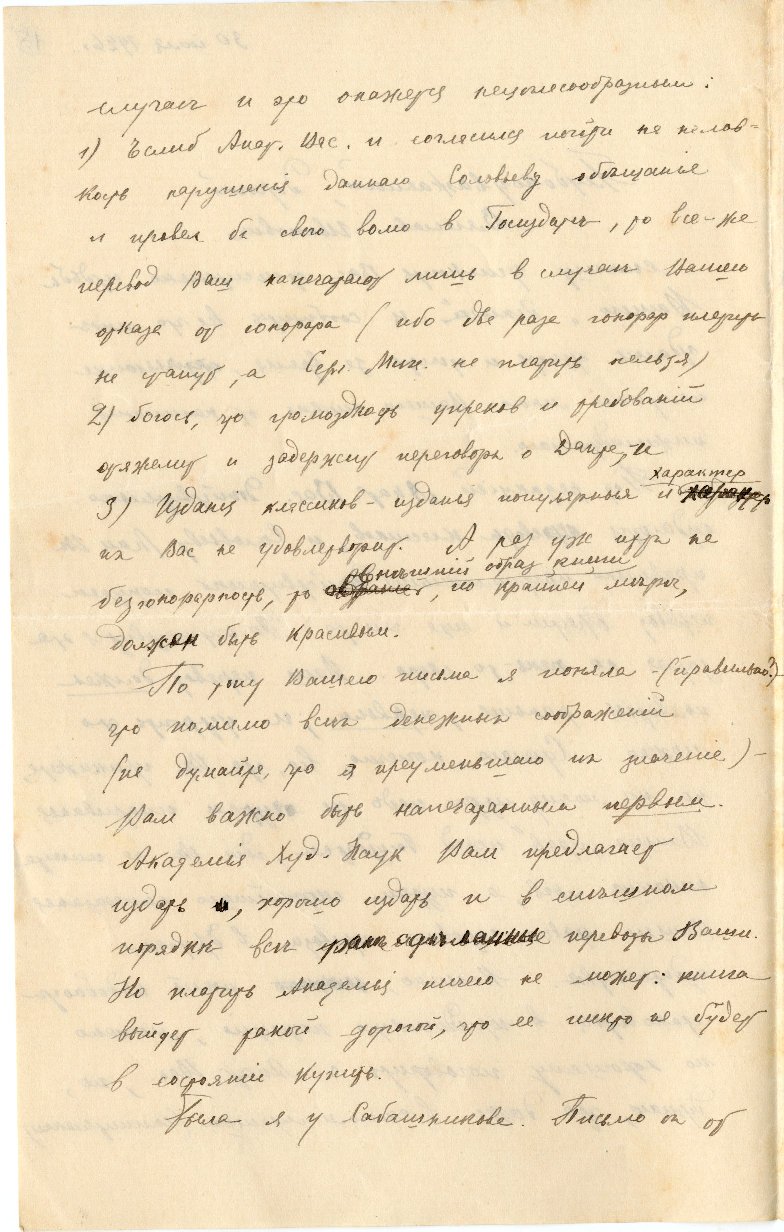 случаѣ и это окажется нецѣлесообразным:
1) Если б Анат. Вас. и согласился пойти на нелов-
кость нарушенія даннаго Соловьеву обѣщанье
и провел бы свою волю в Госиздатѣ, то все-же
перевод Ваш напечатают лишь в случаѣ Вашего
отказа от гонорара (ибо два раза гонорар платить
не станут, а Серг. Мих. не платить нельзя)
2) боюсь, что громоздкость упреков и требованій
отяжелит и задержит переговоры о Данте, и
характер
3) Изданія классиков – изданья популярныя и
их Вас не удовлетворит. А раз уж идти на
внѣшній образ книги
безгонорарность, то , по крайней мѣрѣ,
должен быть красивым.
По тону Вашего письма я поняла – (правильно?) –
что помимо всѣх денежных соображеній
(не думайте, что я преуменьшаю их значеніе) –
Вам важно быть напечатанным первым.
Академія Худ. Наук Вам предлагает
издать , хорошо издать и в спѣшном
порядкѣ всѣ ранѣе сдѣланные переводы Ваши.
Но платить Академія ничего не может: книга
выйдет такой дорогой, что ее никто не будет
в состояніи купить.
Была я у Сабашникова. Письмо он от
30 іюля 1926 г.